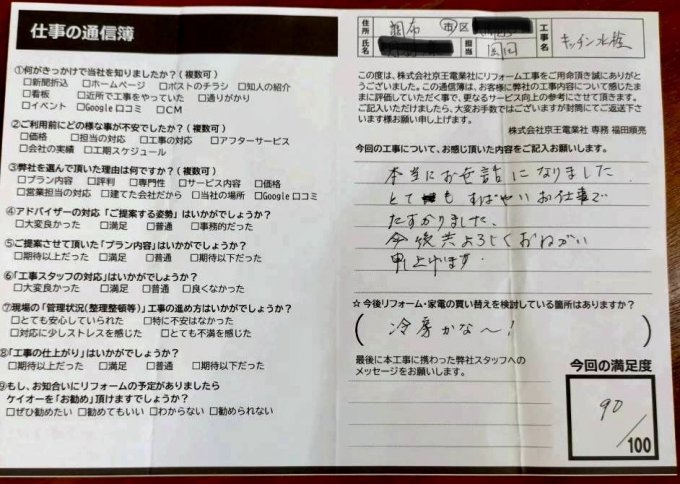 仕事の通信簿
①何がきっかけで当社を知りましたか？(複数可)
□新聞折込 □ホームページ □ポストのチラシ □知人の紹介
□看板 □近所で工事をやっていた □通りがかり
□イベント □Google口コミ □CM
②ご利用前にどの様な事が不安でしたか？(複数可)
□価格 □担当の対応 □工事の対応 □アフターサービス
□会社の実績 □工期スケジュール
③弊社を選んで頂いた理由は何ですか？(複数可)
□プラン内容 □評判 □専門性 □サービス内容 □価格
□営業担当の対応 □建てた会社だから □当社の場所 □Google口コミ
④アドバイザーの対応「ご提案する姿勢」はいかがでしょうか？
□大変良かった □満足 □普通 □事務的だった
⑤ご提案させて頂いた「プラン内容」はいかがでしょうか？
□期待以上だった □満足 □普通 □期待以下だった
⑥「工事スタッフの対応」はいかがでしょうか？
□大変良かった □満足 □普通 □良くなかった
⑦現場の「管理状況(整理整頓等)」工事の進め方はいかがでしょうか？
□とても安心していられた □特に不安はなかった
□対応に少しストレスを感じた □とても不満を感じた
⑧「工事の仕上がり」はいかがでしょうか？
□期待以上だった □満足 □普通 □期待以下だった
⑨もし、お知合いにリフォームの予定がありましたら
ケイオーを「お勧め」頂けますでしょうか？
□ぜひ勧めたい □勧めてもいい □わからない □勧められない
住所 調布 市区
氏名 担当
工事名 キッチン水栓
この度は、株式会社京王電業社にリフォーム工事をご用命頂き誠にありがと
うございました。この通信簿は、お客様に弊社の工事内容について感じたま
まに評価していただく事で、更なるサービス向上の参考にさせて頂きます。
ご記入いただけましたら、大変お手数ではございますが封筒にてご返送下さ
います様お願い申し上げます。
株式会社京王電業社 専務 福田順亮
今回の工事について、お感じ頂いた内容をご記入お願いします。
本当にお世話になりました
とても すばやいお仕事で
たすかりました、
今後共よろしくおねがい
申上げます.
☆今後リフォーム・家電の買い替えを検討している箇所はありますか？
( 冷房かな〜! )
最後に本工事に携わった弊社スタッフへの
メッセージをお願いします。
今回の満足度
90
/100